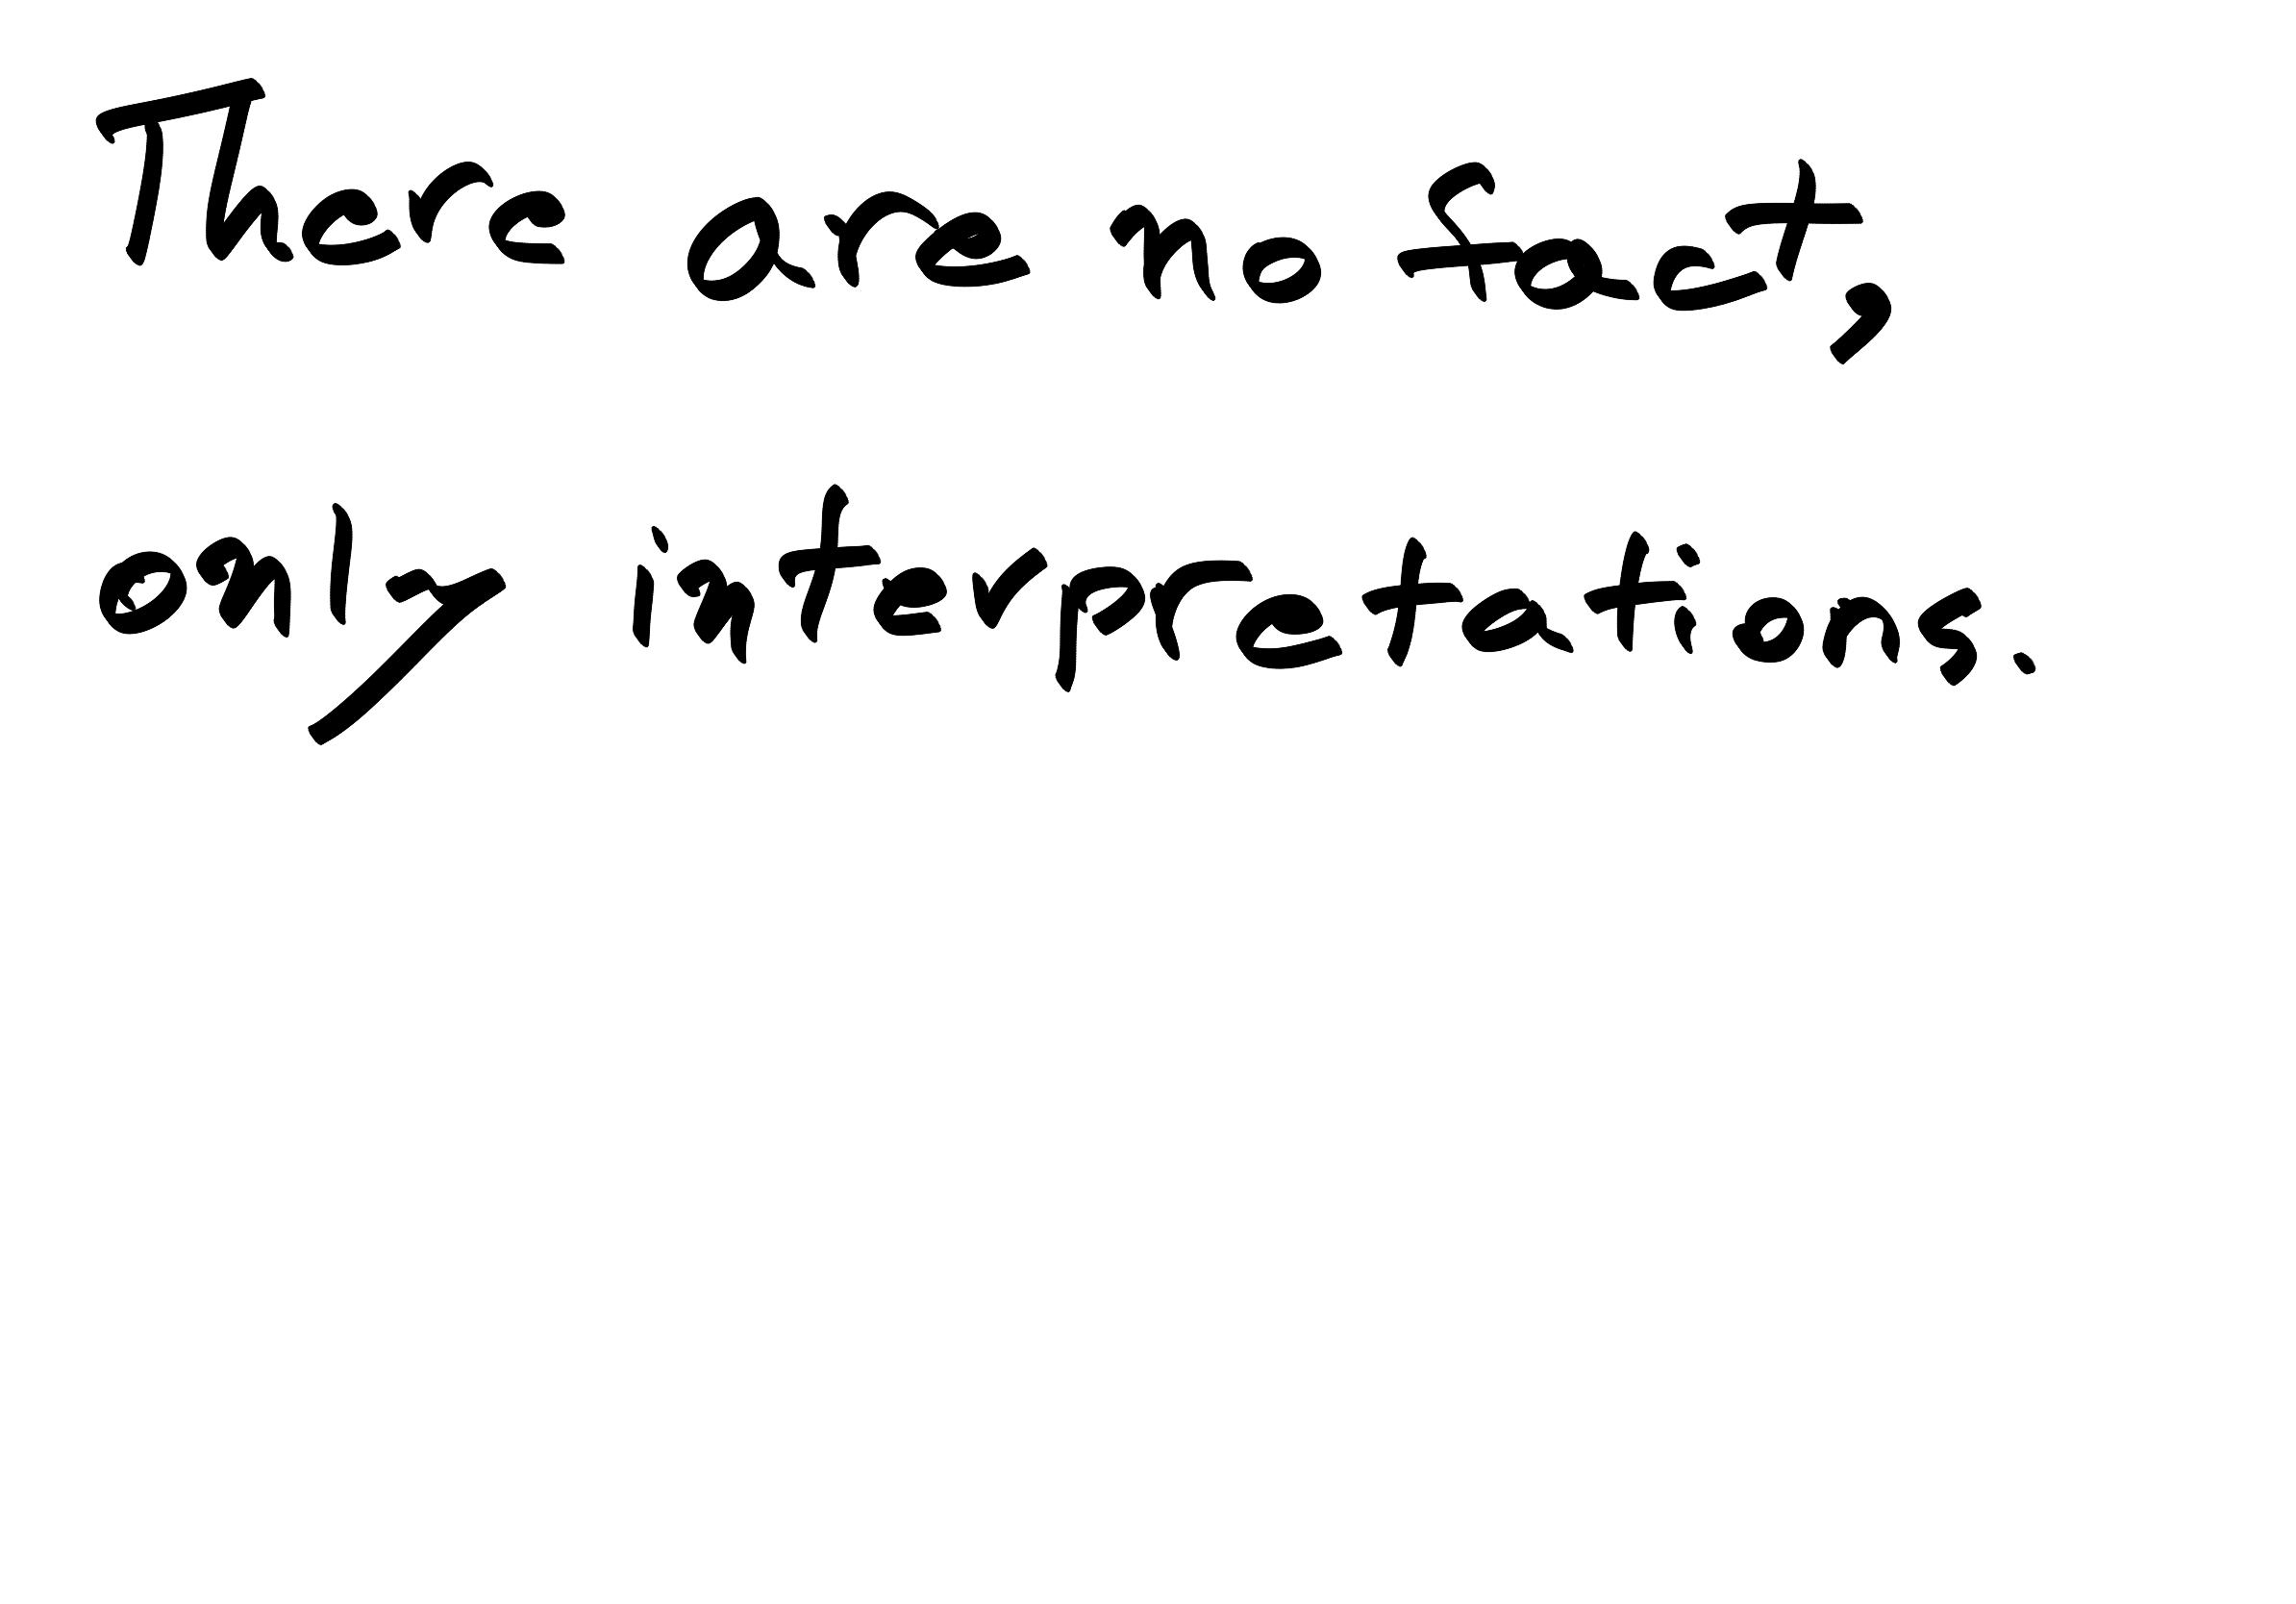 There are no fact,
only interpretations.